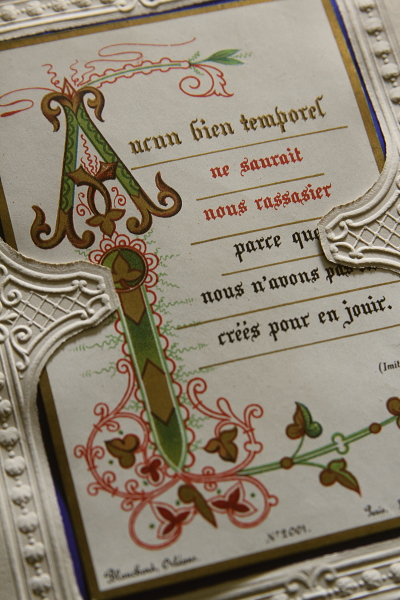 Aucun bien temporel
ne saurait
nous rassasier
parce que
nous n'avons pas
créés pour en jouir.
(Imit
Nº 2001.
Blanchard, Orléans.